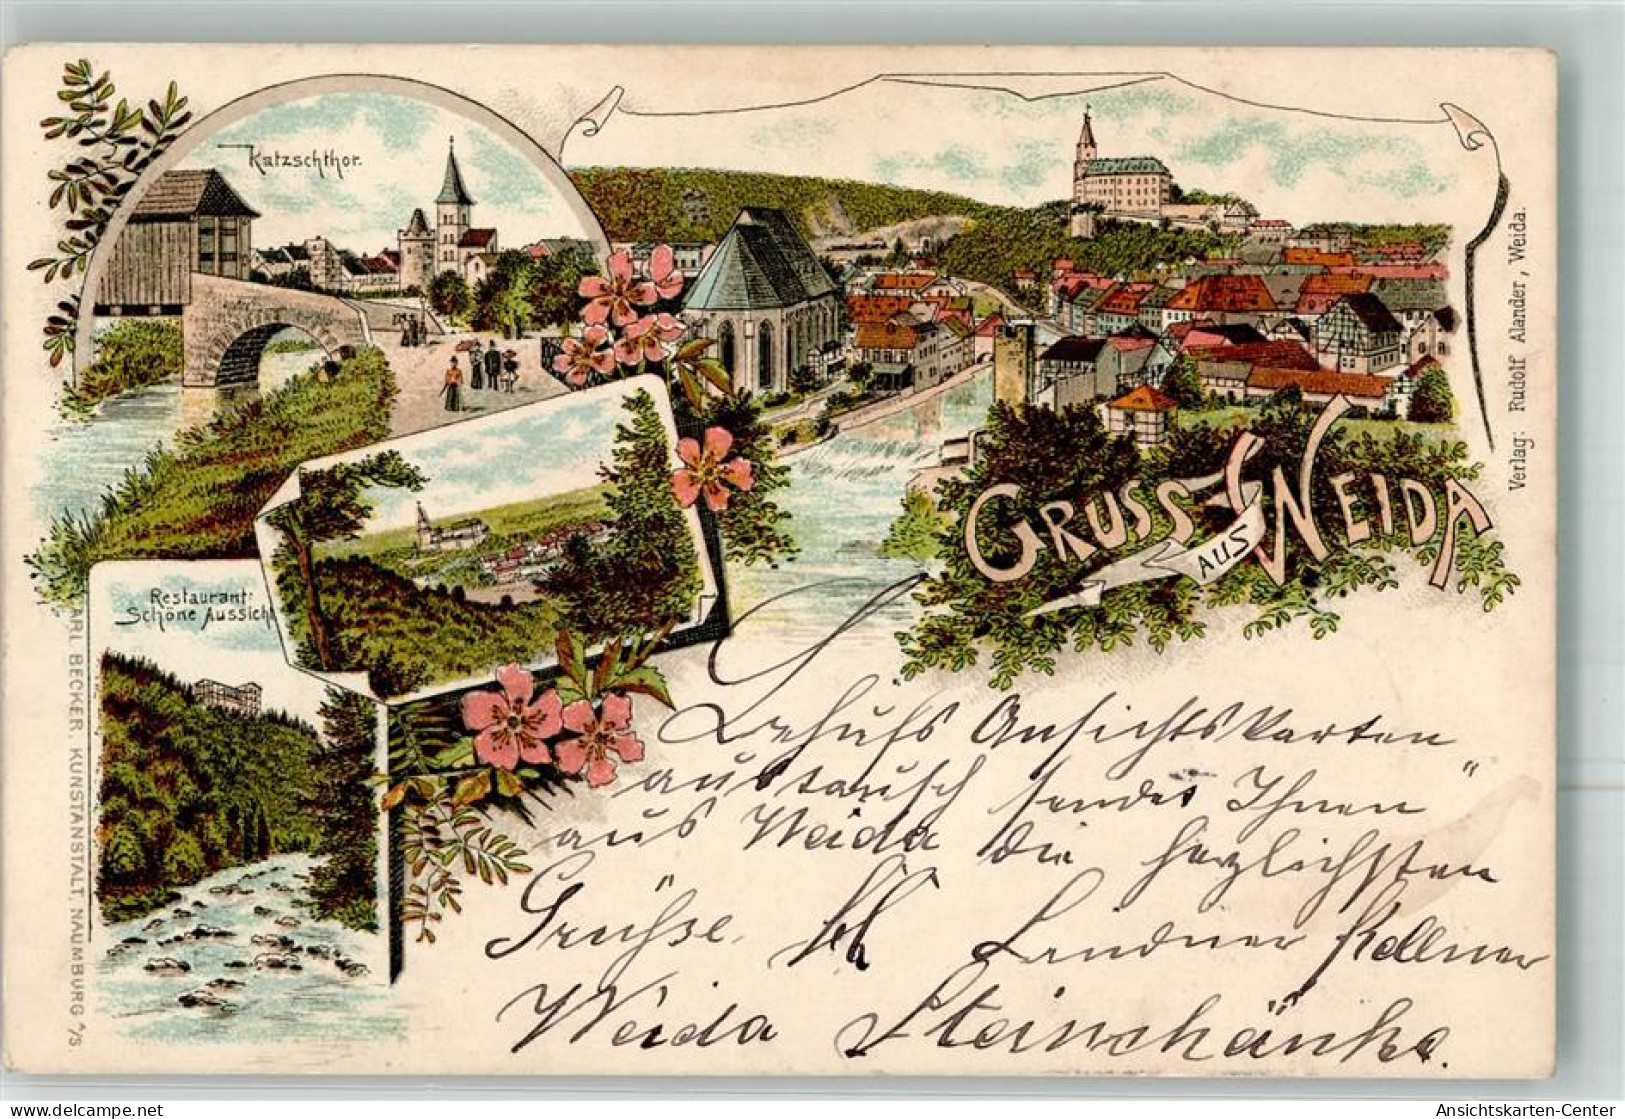 Katzschthor.
Restaurant:
Schöne Aussicht
GRUSS AUS WEIDA
Verlag: Rudolf Alander, Weida.
CARL BECKER KUNSTANSTALT, NAUMBURG a/S.
Behufs Ansichtskarten
austausch sendet Ihnen
aus Weida die herzlichsten
Grüße. Lindner Kellner
Weida Steinschänke.
www.delcampe.net
Ansichtskarten-Center
Ansichtskarten-Center